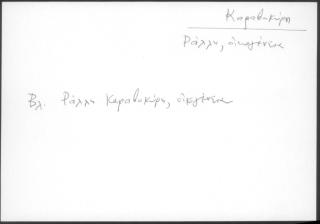 Καραθυκύρη
Ράλλη, οικογένεια
Βλ. Ράλλη Καραθυκύρη, οικογένεια